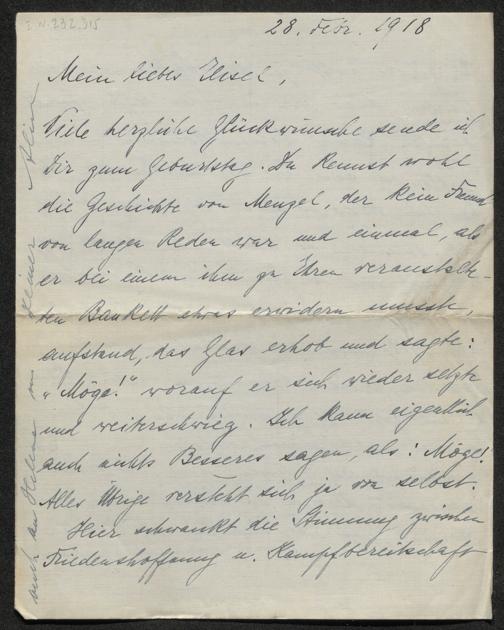 I.N. 232.315
28. Febr. 1918
Mein liebes Lisel,
Viele herzliche Glückwünsche sende ich
Dir zum Geburtstag. Du kennst wohl
die Geschichte von Menzel, der kein Freund
von langen Reden war und einmal, als
er bei einem ihm zu Ehren veranstalte-
ten Bankett etwas erwidern musste,
aufstand, das Glas erhob und sagte:
„Möge!" worauf er sich wieder setzte
und weiterschwieg. Ich kann eigentlich
auch nichts Besseres sagen, als: Möge!
Alles Übrige versteht sich ja von selbst.
Hier schwankt die Stimmung zwischen
Friedenshoffnung u. Kampfbereitschaft
auch an Helene